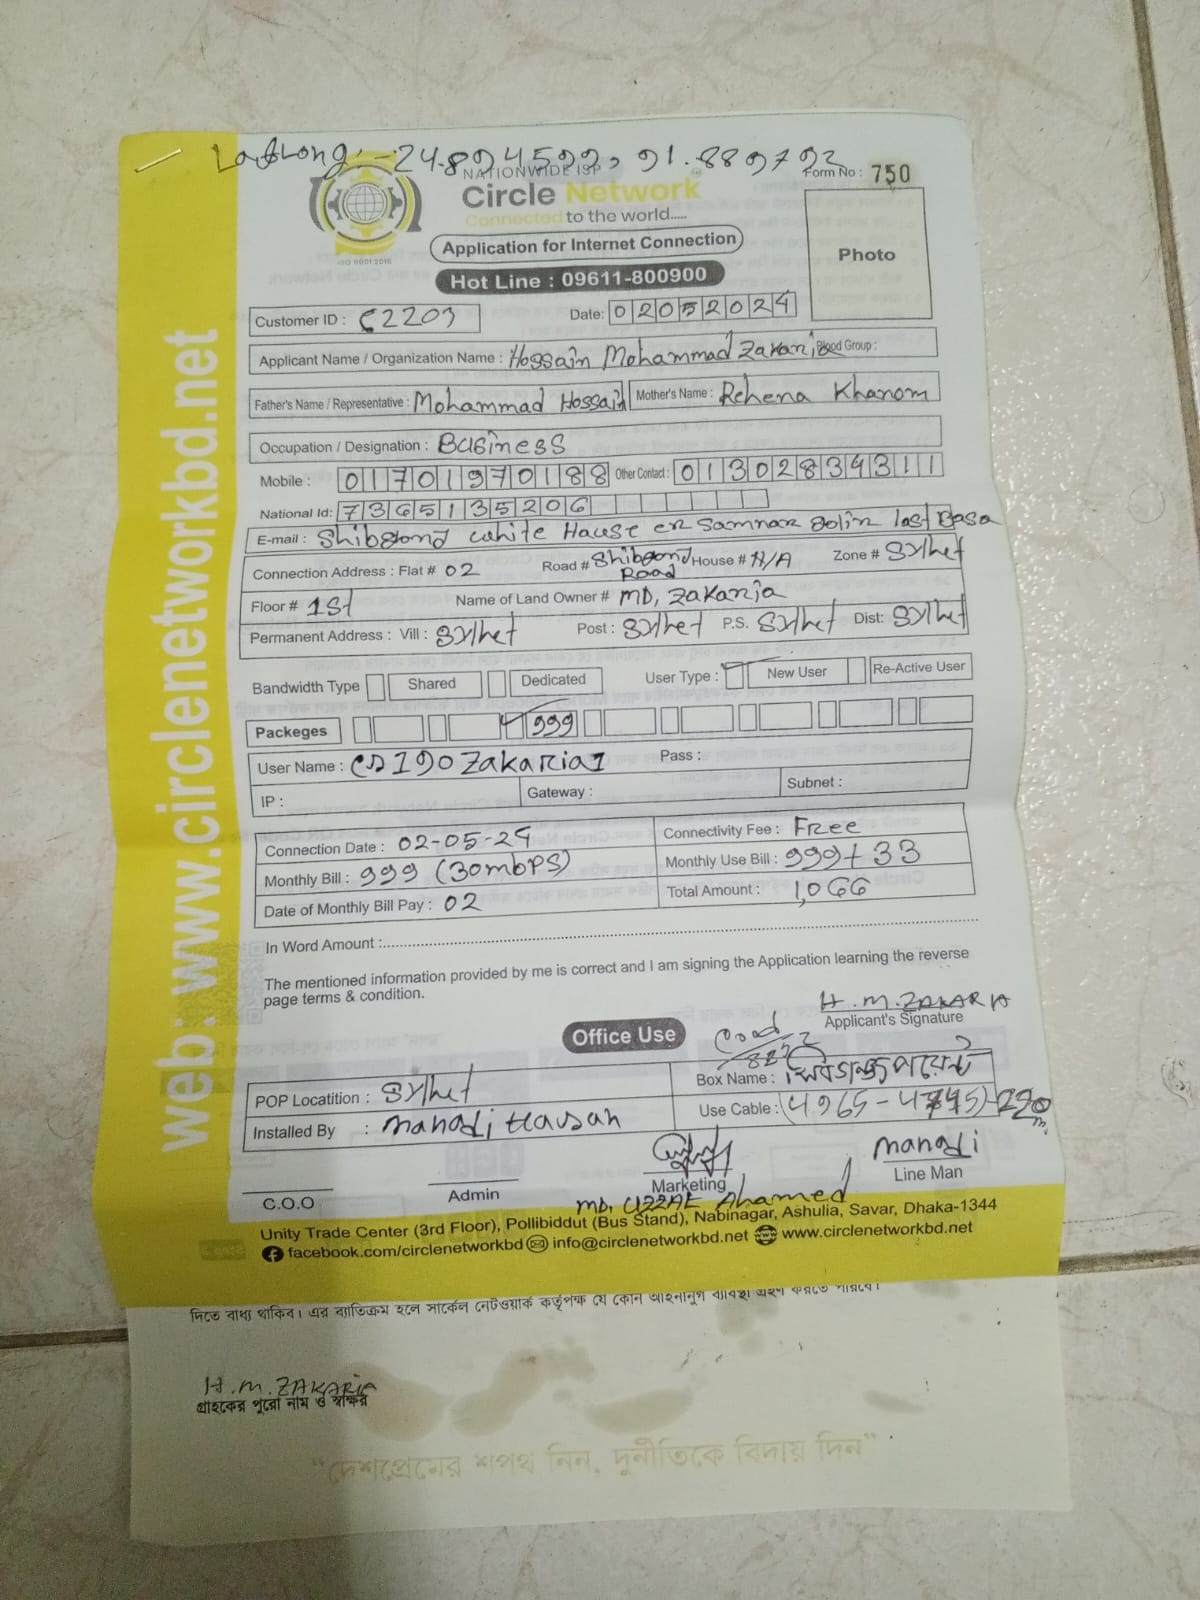 Lat Long:- 24.8945992, 91.889793
NATIONWIDE ISP
Form No : 750
Circle Network
Connected to the world.....
ISO 9001:2015
Photo
Application for Internet Connection
Hot Line : 09611-800900
Customer ID : C2203
Date: 02052024
Applicant Name / Organization Name : Hossain Mohammad Zakari Blood Group :
Father's Name / Representative : Mohammad Hossain Mother's Name : Rehena Khanom
Occupation / Designation : Business
Mobile : 01701970188 Other Contact : 01302834311
National Id: 7365135206
E-mail : Shibgond white House er samnar golir last Basa
Connection Address : Flat # 02 Road # Shibgond Road House # N/A Zone # Sylhet
Floor # 1st Name of Land Owner # MD, Zakaria
Permanent Address : Vill : Sylhet Post : Sylhet P.S. Sylhet Dist: Sylhet
Bandwidth Type Shared Dedicated User Type : New User Re-Active User
Packeges 999
User Name : Zakaria1 Pass :
IP : Gateway : Subnet :
Connection Date : 02-05-24 Connectivity Fee : Free
Monthly Bill : 999 (30mbps) Monthly Use Bill : 999+33
Date of Monthly Bill Pay : 02 Total Amount : 1,066
In Word Amount :
The mentioned information provided by me is correct and I am signing the Application learning the reverse
page terms & condition.
H.M.ZAKARIA
Applicant's Signature
Office Use
POP Locatition : Sylhet Box Name : শিবগঞ্জ পয়েন্ট
Installed By : Use Cable :
C.O.O Admin Marketing Line Man
MD, Ahamed
Unity Trade Center (3rd Floor), Pollibiddut (Bus Stand), Nabinagar, Ashulia, Savar, Dhaka-1344
facebook.com/circlenetworkbd info@circlenetworkbd.net www.circlenetworkbd.net
web: www.circlenetworkbd.net
দিতে বাধ্য থাকিব। এর ব্যতিক্রম হলে সার্কেল নেটওয়ার্ক কর্তৃপক্ষ যে কোন আইনানুগ ব্যবস্থা গ্রহণ করতে পারবে।
H.M.ZAKARIA
গ্রাহকের পুরো নাম ও স্বাক্ষর
“দেশপ্রেমের শপথ নিন, দুর্নীতিকে বিদায় দিন”